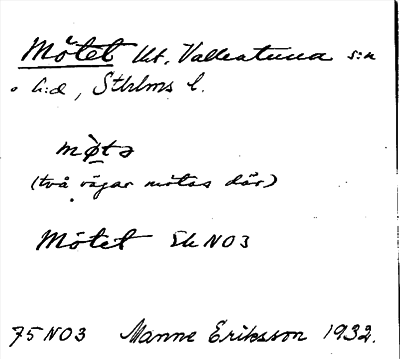 Mötet Ut. Vallentuna s:n
o h:d, Sthlms l.
mø̀tə
(två vägar mötas där)
Mötet Ek NO3
75 NO3 Manne Eriksson 1932.